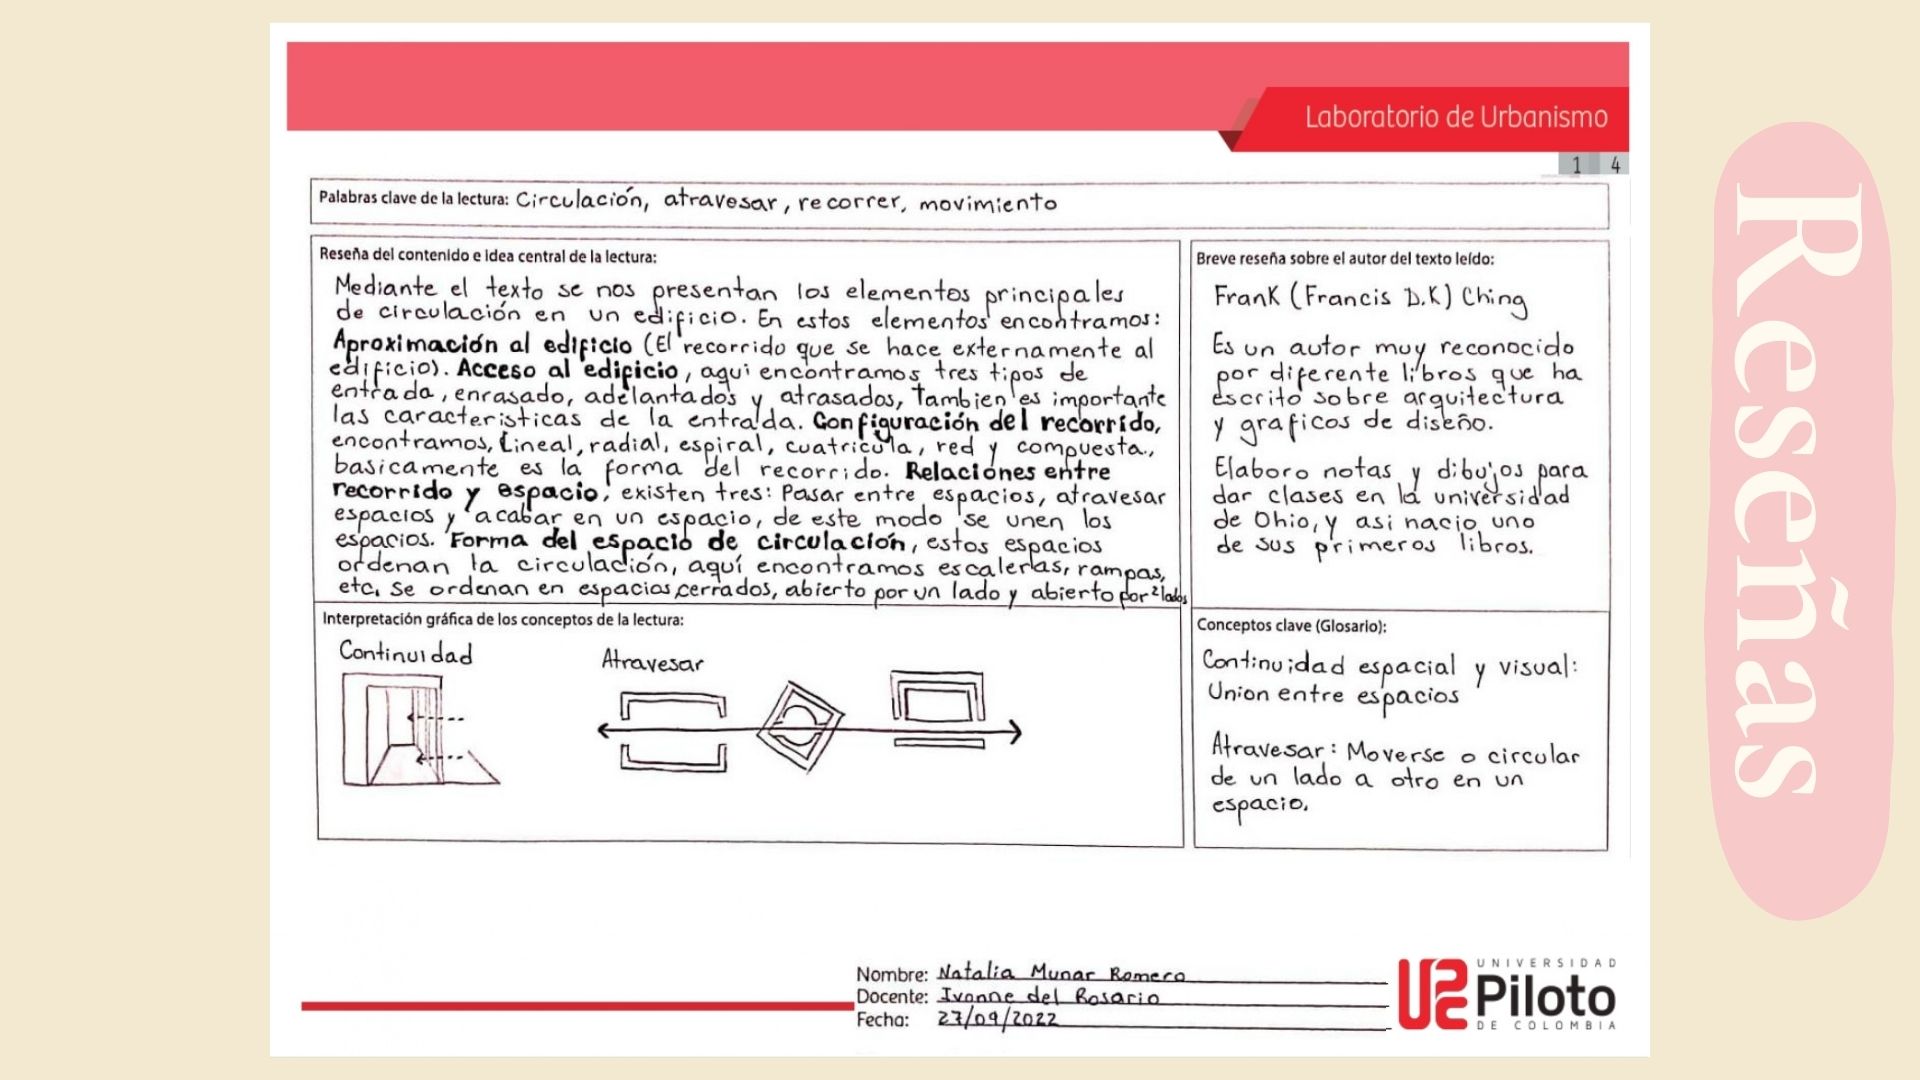 Laboratorio de Urbanismo
1 4
Palabras clave de la lectura: Circulación, atravesar, recorrer, movimiento
Reseña del contenido e idea central de la lectura:
Mediante el texto se nos presentan los elementos principales
de circulación en un edificio. En estos elementos encontramos:
Aproximación al edificio (El recorrido que se hace externamente al
edificio). Acceso al edificio, aqui encontramos tres tipos de
entrada, enrasado, adelantados y atrasados, Tambien es importante
las caracteristicas de la entrada. Configuración del recorrido,
encontramos, Lineal, radial, espiral, cuatricula, red y compuesta.,
basicamente es la forma del recorrido. Relaciones entre
recorrido y espacio, existen tres: Pasar entre espacios, atravesar
espacios y acabar en un espacio, de este modo se unen los
espacios. Forma del espacio de circulación, estos espacios
ordenan la circulación, aquí encontramos escaleras, rampas,
etc. Se ordenan en espacios cerrados, abierto por un lado y abierto por 2 lados
Breve reseña sobre el autor del texto leído:
Frank (Francis D.K) Ching
Es un autor muy reconocido
por diferente libros que ha
escrito sobre arquitectura
y graficos de diseño.
Elaboro notas y dibujos para
dar clases en la universidad
de Ohio, y asi nacio uno
de sus primeros libros.
Interpretación gráfica de los conceptos de la lectura:
Continuidad
Atravesar
Conceptos clave (Glosario):
Continuidad espacial y visual:
Union entre espacios
Atravesar: Moverse o circular
de un lado a otro en un
espacio.
Nombre: Natalia Munar Romero
Docente: Ivonne del Rosario
Fecha: 27/09/2022
UNIVERSIDAD
Piloto
DE COLOMBIA
Reseñas